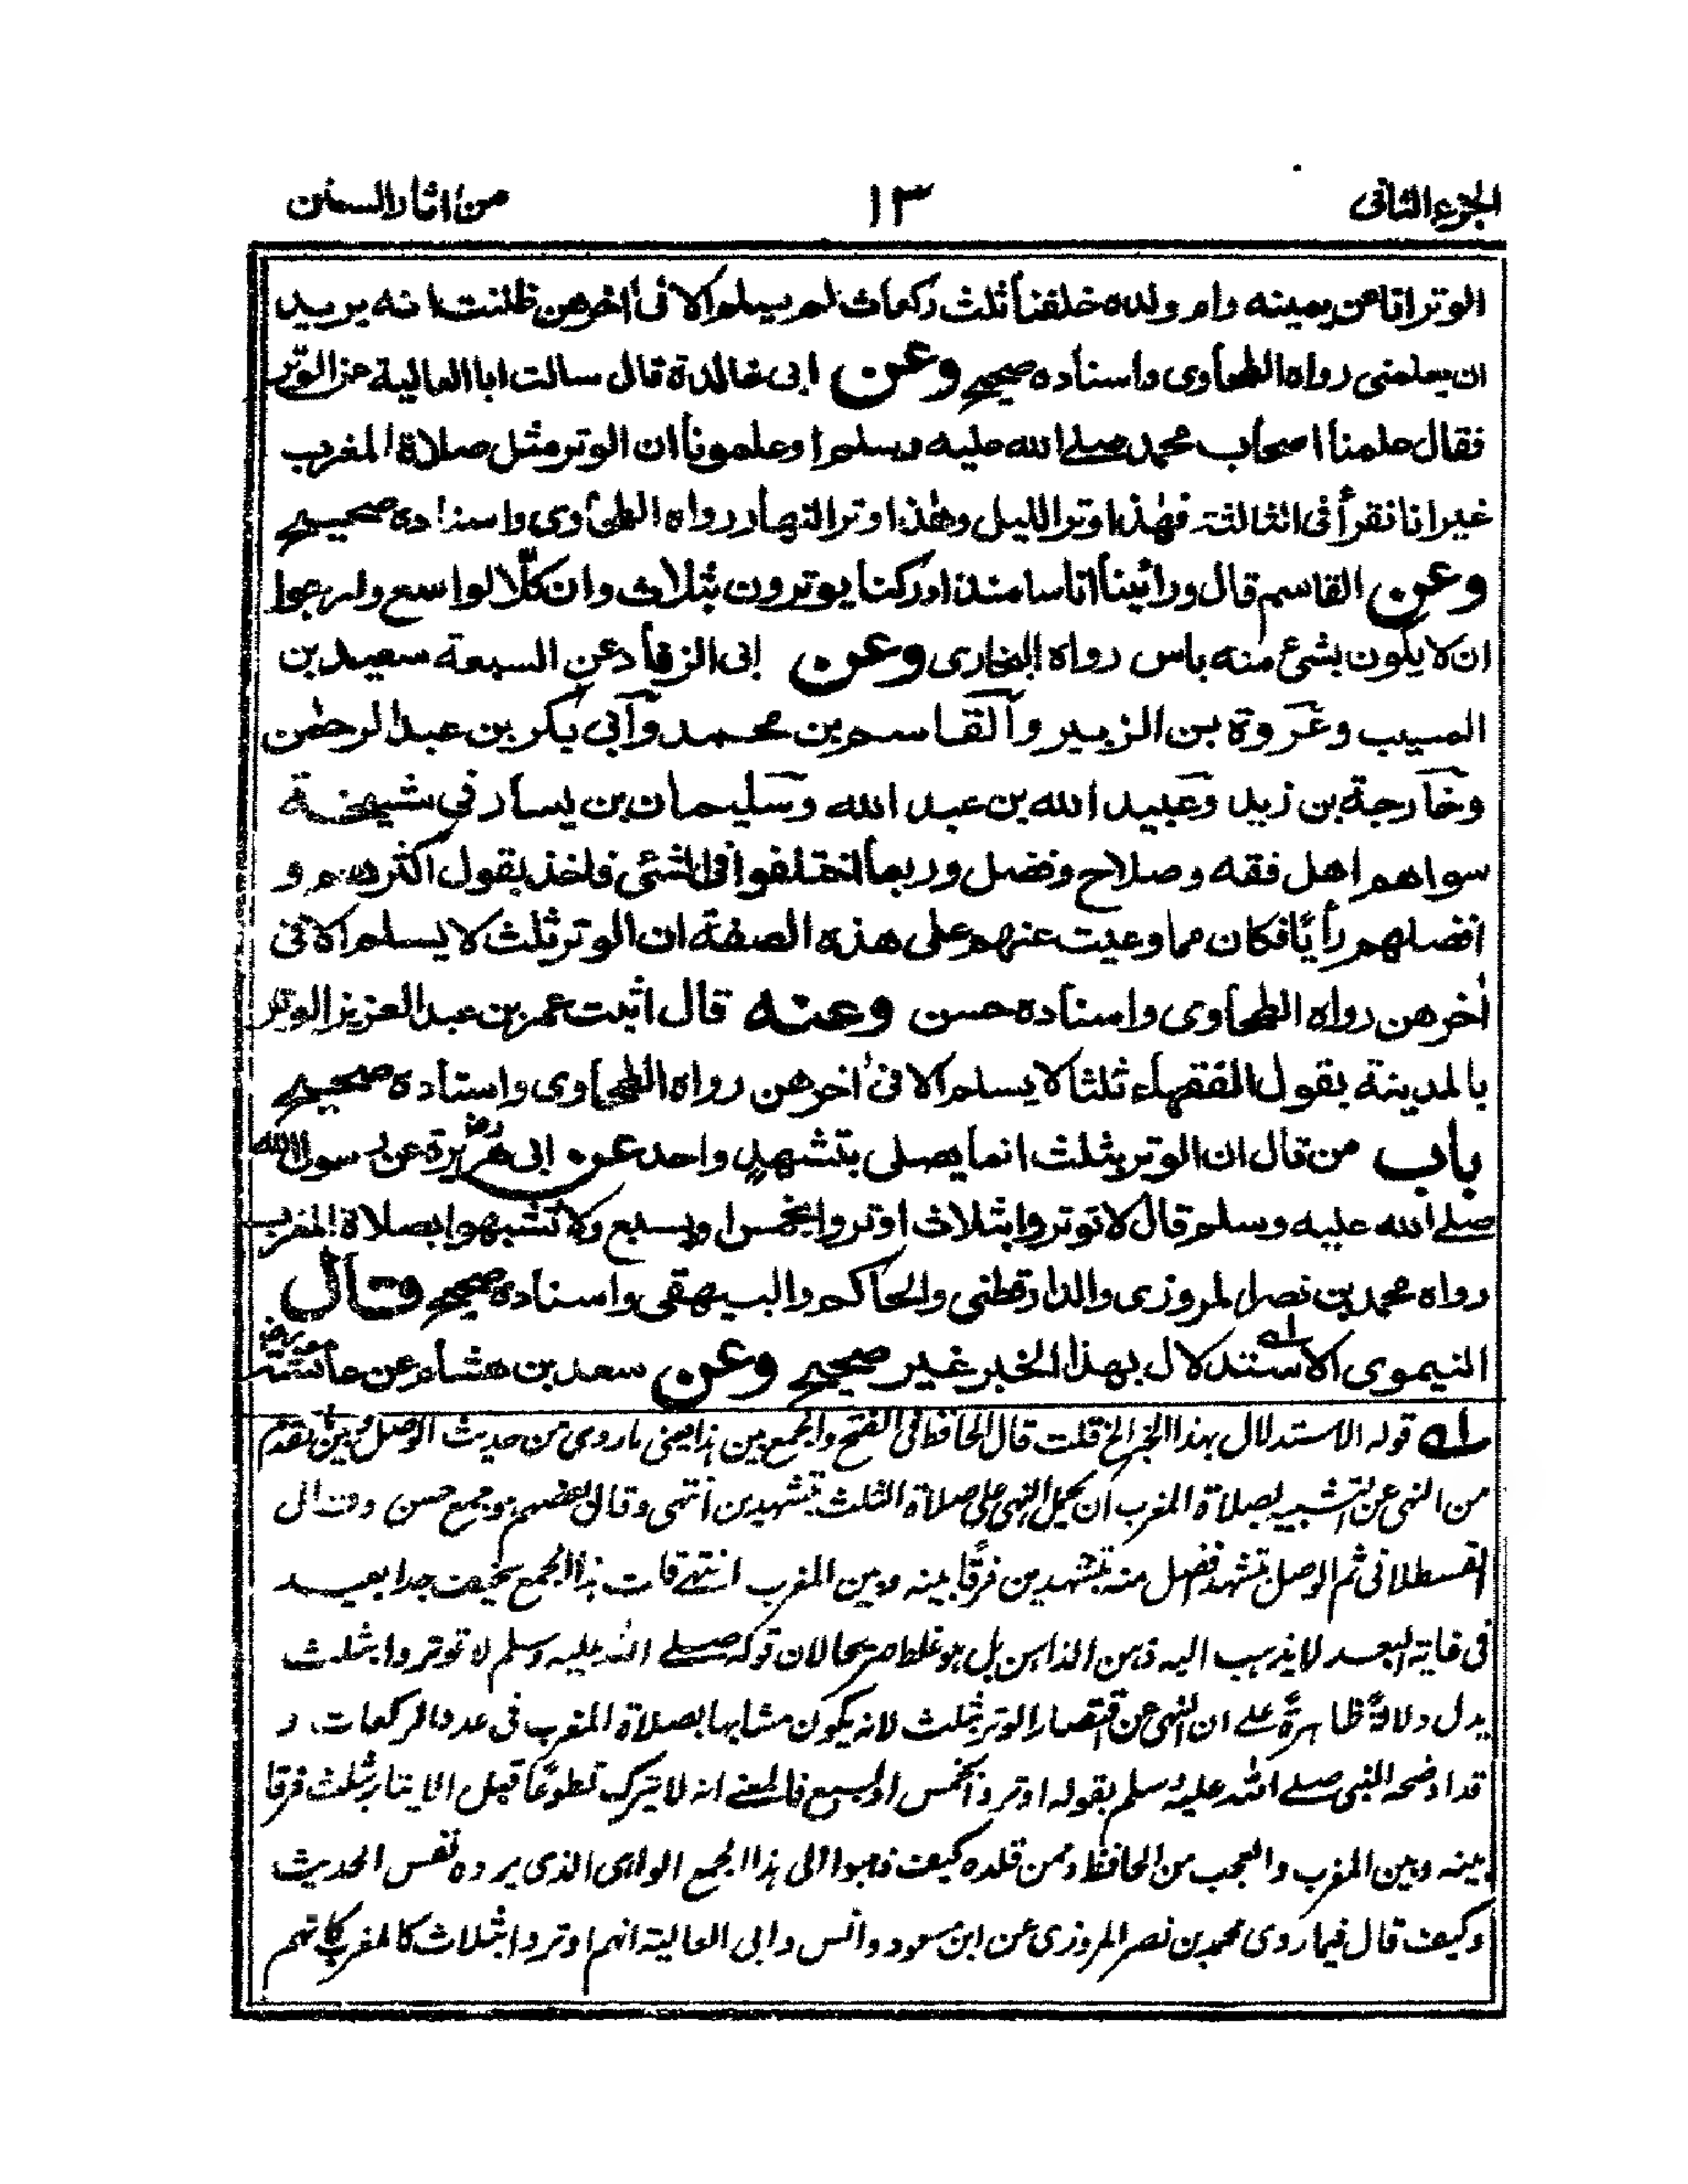 الجزء الثانی ١٣ من اثار السنن
الوتر انا عن يمينه وام ولده خلفنا ثلث ركعات لم يسلم الا فى اخرهن ظننت انه يريد
ان يعلمنى رواه الطحاوى واسناده صحيح وعن ابى خالدة قال سالت ابا العالية عن الوتر
فقال علمنا اصحاب محمد صلے الله عليه وسلم او علمونا ان الوتر مثل صلاة المغرب
غير انا نقرأ فى الثالثة فهذا وتر الليل وهذا وتر النهار رواه الطحاوى واسناده صحيح
وعن القاسم قال ورأينا اناسا منذ ادركنا يوترون بثلاث وان كلّا لواسع وارجوا
ان لا يكون بشئ منه باس رواه البخارى وعن ابى الزناد عن السبعة سعيد بن
المسيب وعروة بن الزبير والقاسم بن محمد وابى بكر بن عبد الرحمن
وخارجة بن زيد وعبيد الله بن عبد الله وسليمان بن يسار فى مشيخة
سواهم اهل فقه وصلاح وفضل وربما اختلفوا فى الشئى فاخذ بقول اكثرهم و
افضلهم رأيًا فكان مما وعيت عنهم على هذه الصفة ان الوتر ثلث لا يسلم الا فى
اخرهن رواه الطحاوى واسناده حسن وعنه قال اثبت عمر بن عبد العزيز الوتر
بالمدينة بقول الفقهاء ثلثا لا يسلم الا فى اخرهن رواه الطحاوى واسناده صحيح
باب من قال ان الوتر بثلث انما يصلى بتشهد واحد عن ابى هريرة رض عن رسول الله
صلے الله عليه وسلم قال لا توتروا بثلاث اوتروا بخمس او بسبع ولا تشبهوا بصلاة المغرب
رواه محمد بن نصر المروزى والدارقطنى والحاكم والبيهقى واسناده صحيح وقال
النيموى الاستدلال بهذا الخبر غير صحيح وعن سعد بن هشام عن عائشة رض
لـه قوله الاستدلال بهذا الخبر الخ قلت قال الحافظ فى الفتح والجمع بين هذا يعنى ما روى من حديث الوصل وبين ما تقدم
من النهى عن التشبيه بصلاة المغرب ان يحمل النهى على صلاة الثلث بتشهدين انتهى وقال بعضهم هو جمع حسن وقال
القسطلانى ثم الوصل بتشهد افضل منه بتشهدين فرقا بينه وبين المغرب انتهى قلت هذا الجمع سخيف جدا بعيد
فى غاية البعد لا يذهب اليه ذهن الذاهن بل هو غلط صريحا لان قوله صلے الله عليه وسلم لا توتروا بثلث
يدل دلالة ظاهرة علے ان النهى عن اقتصار الوتر بثلث لانه يكون مشابها بصلاة المغرب فى عدد الركعات و
قد اوضحه النبى صلے الله عليه وسلم بقوله اوتروا بخمس او بسبع فالمعنے انه لا يترك تطوعًا قبل الايتار بثلث فرقا
بينه وبين المغرب والعجب من الحافظ ومن قلده كيف ذهبوا الى هذا الجمع الواهى الذى يرده نفس الحديث
وكيف قال فيما روى محمد بن نصر المروزى عن ابن مسعود وانس وابى العالية انهم اوتروا بثلاث كالمغرب كانهم